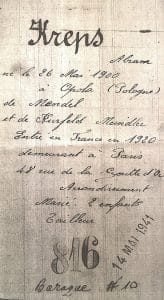 Kreps
Abram
né le 26 Mai 1900
à Opola (Pologne)
de Mendel
et de Hirsfeld Mindla
Entré en France en 1920
demeurant à Paris
48 rue de la Goutte d'Or
Arrondissement
Marié 2 enfants
Tailleur
816
14 MAI 1941
Baraque N 10